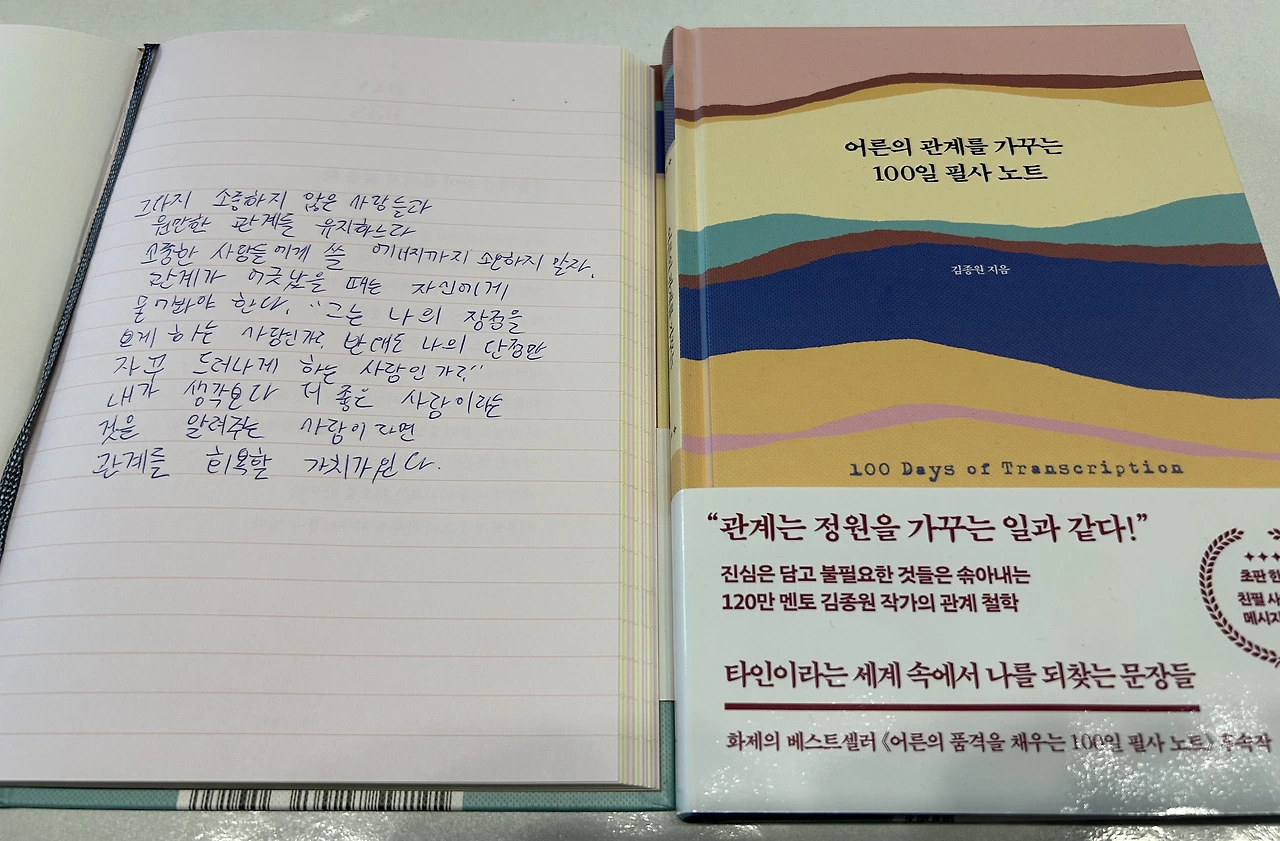 그다지 소중하지 않은 사람들과
원만한 관계를 유지하느라
소중한 사람들에게 쓸 에너지까지 소진하지 말자.
관계가 어긋났을 때는 자신에게
물어봐야 한다. "그는 나의 장점을
보게 하는 사람인가? 반대로 나의 단점만
자꾸 드러나게 하는 사람인가?"
내가 생각보다 더 좋은 사람이라는
것을 알려주는 사람이라면
관계를 회복할 가치가 있다.
어른의 관계를 가꾸는
100일 필사 노트
김종원 지음
100 Days of Transcription
“관계는 정원을 가꾸는 일과 같다!”
진심은 담고 불필요한 것들은 솎아내는
120만 멘토 김종원 작가의 관계 철학
초판 한
친필 사
메시지
타인이라는 세계 속에서 나를 되찾는 문장들
화제의 베스트셀러 《어른의 품격을 채우는 100일 필사 노트》 후속작